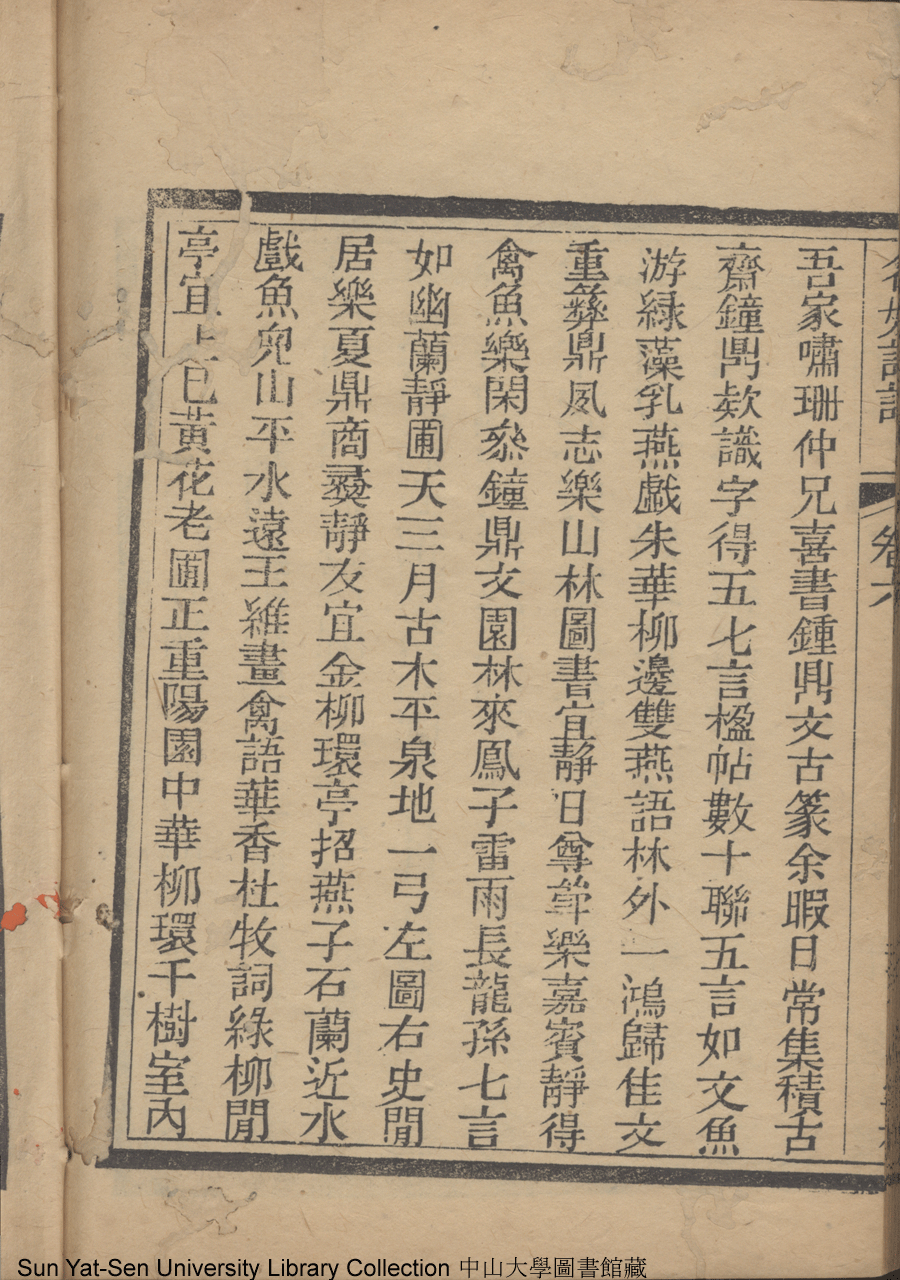 卷六
吾家嘯珊仲兄喜書鍾鼎文古篆余暇日常集積古
齋鐘鼎欵識字得五七言楹帖數十聯五言如文魚
游緑藻乳燕戲朱華柳邊雙燕語林外一鴻歸隹文
重彝鼎夙志樂山林圖書宜靜日尊斝樂嘉賓靜得
禽魚樂閑叅鐘鼎文園林來鳳子雷雨長龍孫七言
如幽蘭靜圃天三月古木平泉地一弓左圖右史閒
居樂夏鼎商彝靜友宜金柳環亭招燕子石蘭近水
戲魚兒山平水遠王維畫禽語華香杜牧詞綠柳閒
亭宜上巳黃花老圃正重陽園中華柳環千樹室內
Sun Yat-Sen University Library Collection 中山大學圖書館藏